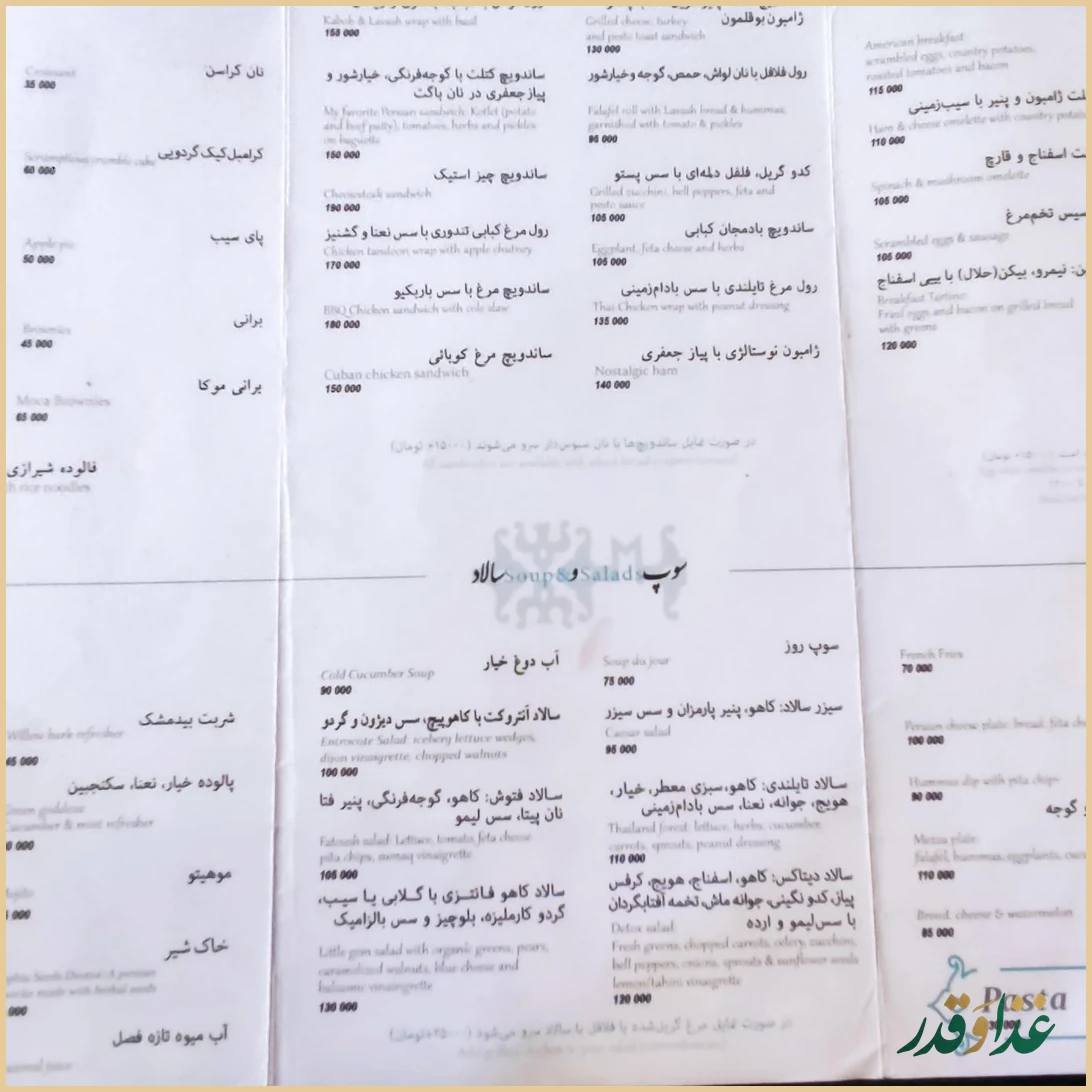 Croissant
نان کراسن
35 000
کرامبل کیک گردویی
Scrumptious crumble cake
60 000
پای سیب
Apple pie
50 000
برانی
Brownies
45 000
برانی موکا
Moca Brownies
65 000
فالوده شیرازی
rice noodles
شربت بیدمشک
Willow bark refresher
پالوده خیار، نعنا، سکنجبین
Green goddess
Cucumber & mint refresher
موهیتو
خاک شیر
made with herbal seeds
آب میوه تازه فصل
Kabob & Lavash wrap with basil
150 000
ساندویچ کتلت با گوجه‌فرنگی، خیارشور و
پیازجعفری در نان باگت
My favorite Persian sandwich: Kotlet (potato
and beef patty), tomatoes, herbs and pickles
on baguette
150 000
ساندویچ چیز استیک
Cheesesteak sandwich
190 000
رول مرغ کبابی تندوری با سس نعنا و گشنیز
Chicken tandoori wrap with apple chutney
170 000
ساندویچ مرغ با سس باربکیو
BBQ Chicken sandwich with cole slaw
180 000
ساندویچ مرغ کوبائی
Cuban chicken sandwich
150 000
ژامبون بوقلمون
Grilled cheese, turkey
and pesto toast sandwich
130 000
رول فلافل با نان لواش، حمص، گوجه و خیارشور
Falafel roll with Lavash bread & hummus,
garnished with tomato & pickles
95 000
کدو گریل، فلفل دلمه‌ای با سس پستو
Grilled zucchini, bell peppers, feta and
pesto sauce
105 000
ساندویچ بادمجان کبابی
Eggplant, feta cheese and herbs
105 000
رول مرغ تایلندی با سس بادام‌زمینی
Thai Chicken wrap with peanut dressing
135 000
ژامبون نوستالژی با پیاز جعفری
Nostalgic ham
140 000
در صورت تمایل ساندویچ‌ها با نان سبوس‌دار سرو می‌شوند (۱۵۰۰۰+ تومان)
سوپ و سالاد
Soup & Salads
آب دوغ خیار
Cold Cucumber Soup
90 000
سالاد آنتروکت با کاهوپیچ، سس دیژون و گردو
Entrocote Salad: iceberg lettuce wedges,
dijon vinaigrette, chopped walnuts
100 000
سالاد فتوش: کاهو، گوجه‌فرنگی، پنیر فتا
نان پیتا، سس لیمو
Fatoush salad: Lettuce, tomato, feta cheese
pita chips, sumaq vinaigrette
105 000
سالاد کاهو فانتزی با گلابی یا سیب،
گردو کارملیزه، بلوچیز و سس بالزامیک
Little gem salad with organic greens, pears,
caramelized walnuts, blue cheese and
balsamic vinaigrette
130 000
سوپ روز
Soup du jour
75 000
سیزر سالاد: کاهو، پنیر پارمزان و سس سیزر
Caesar salad
95 000
سالاد تایلندی: کاهو، سبزی معطر، خیار،
هویج، جوانه، نعنا، سس بادام‌زمینی
Thailand forest: lettuce, herbs, cucumber,
carrots, sprouts, peanut dressing
110 000
سالاد دیتاکس: کاهو، اسفناج، هویج، کرفس
پیاز، کدو نگینی، جوانه ماش، تخمه آفتابگردان
با سس‌لیمو و ارده
Detox salad:
Fresh greens, chopped carrots, celery, zucchini,
bell peppers, onions, sprouts & sunflower seeds
lemon/tahini vinaigrette
120 000
در صورت تمایل مرغ گریل‌شده یا فلافل با سالاد سرو می‌شود
American breakfast:
scrambled eggs, country potatoes,
roasted tomatoes and bacon
115 000
ژامبون و پنیر با سیب‌زمینی
Ham & cheese omelette with country
110 000
اسفناج و قارچ
Spinach & mushroom omelette
105 000
تخم‌مرغ
Scrambled eggs & sausage
105 000
نیمرو، بیکن(حلال) با بیبی اسفناج
Breakfast Tartine:
Fried eggs and bacon on grilled bread
with greens
120 000
French Fries
70 000
Persian cheese plate: bread, feta
100 000
Hummus dip with pita chips
90 000
و گوجه
Mezza plate:
falafel, hummus, eggplants,
110 000
Bread, cheese & watermelon
85 000
Pasta
غذا و قدر